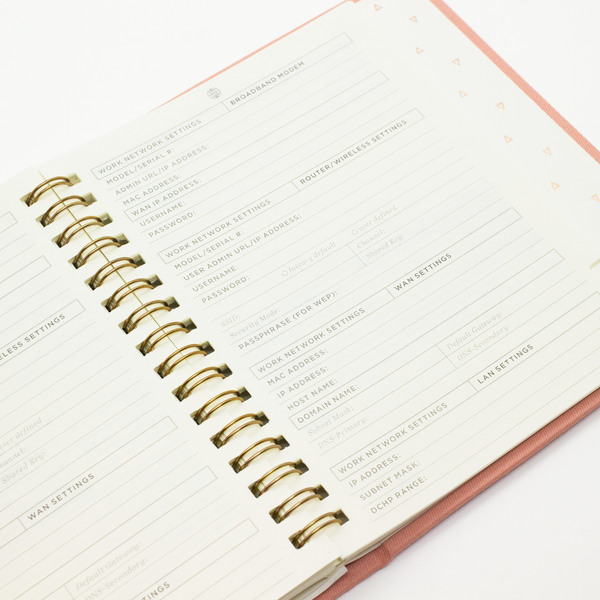 WORK NETWORK SETTINGS BROADBAND MODEM
MODEL/SERIAL #:
ADMIN URL/IP ADDRESS:
MAC ADDRESS:
WAN IP ADDRESS:
USERNAME:
PASSWORD:
WORK NETWORK SETTINGS ROUTER/WIRELESS SETTINGS
MODEL/SERIAL #:
USER ADMIN URL/IP ADDRESS:
USERNAME:
PASSWORD: O factory default O user defined
SSID: Channel:
Security Mode: Shared Key:
PASSPHRASE (FOR WEP):
WORK NETWORK SETTINGS WAN SETTINGS
MAC ADDRESS:
IP ADDRESS:
HOST NAME:
DOMAIN NAME:
Subnet Mask: Default Gateway:
DNS-Primary: DNS-Secondary:
WORK NETWORK SETTINGS LAN SETTINGS
IP ADDRESS:
SUBNET MASK:
DCHP RANGE:
ELESS SETTINGS
defined
Shared Key:
WAN SETTINGS
Default Gateway:
DNS-Secondary: